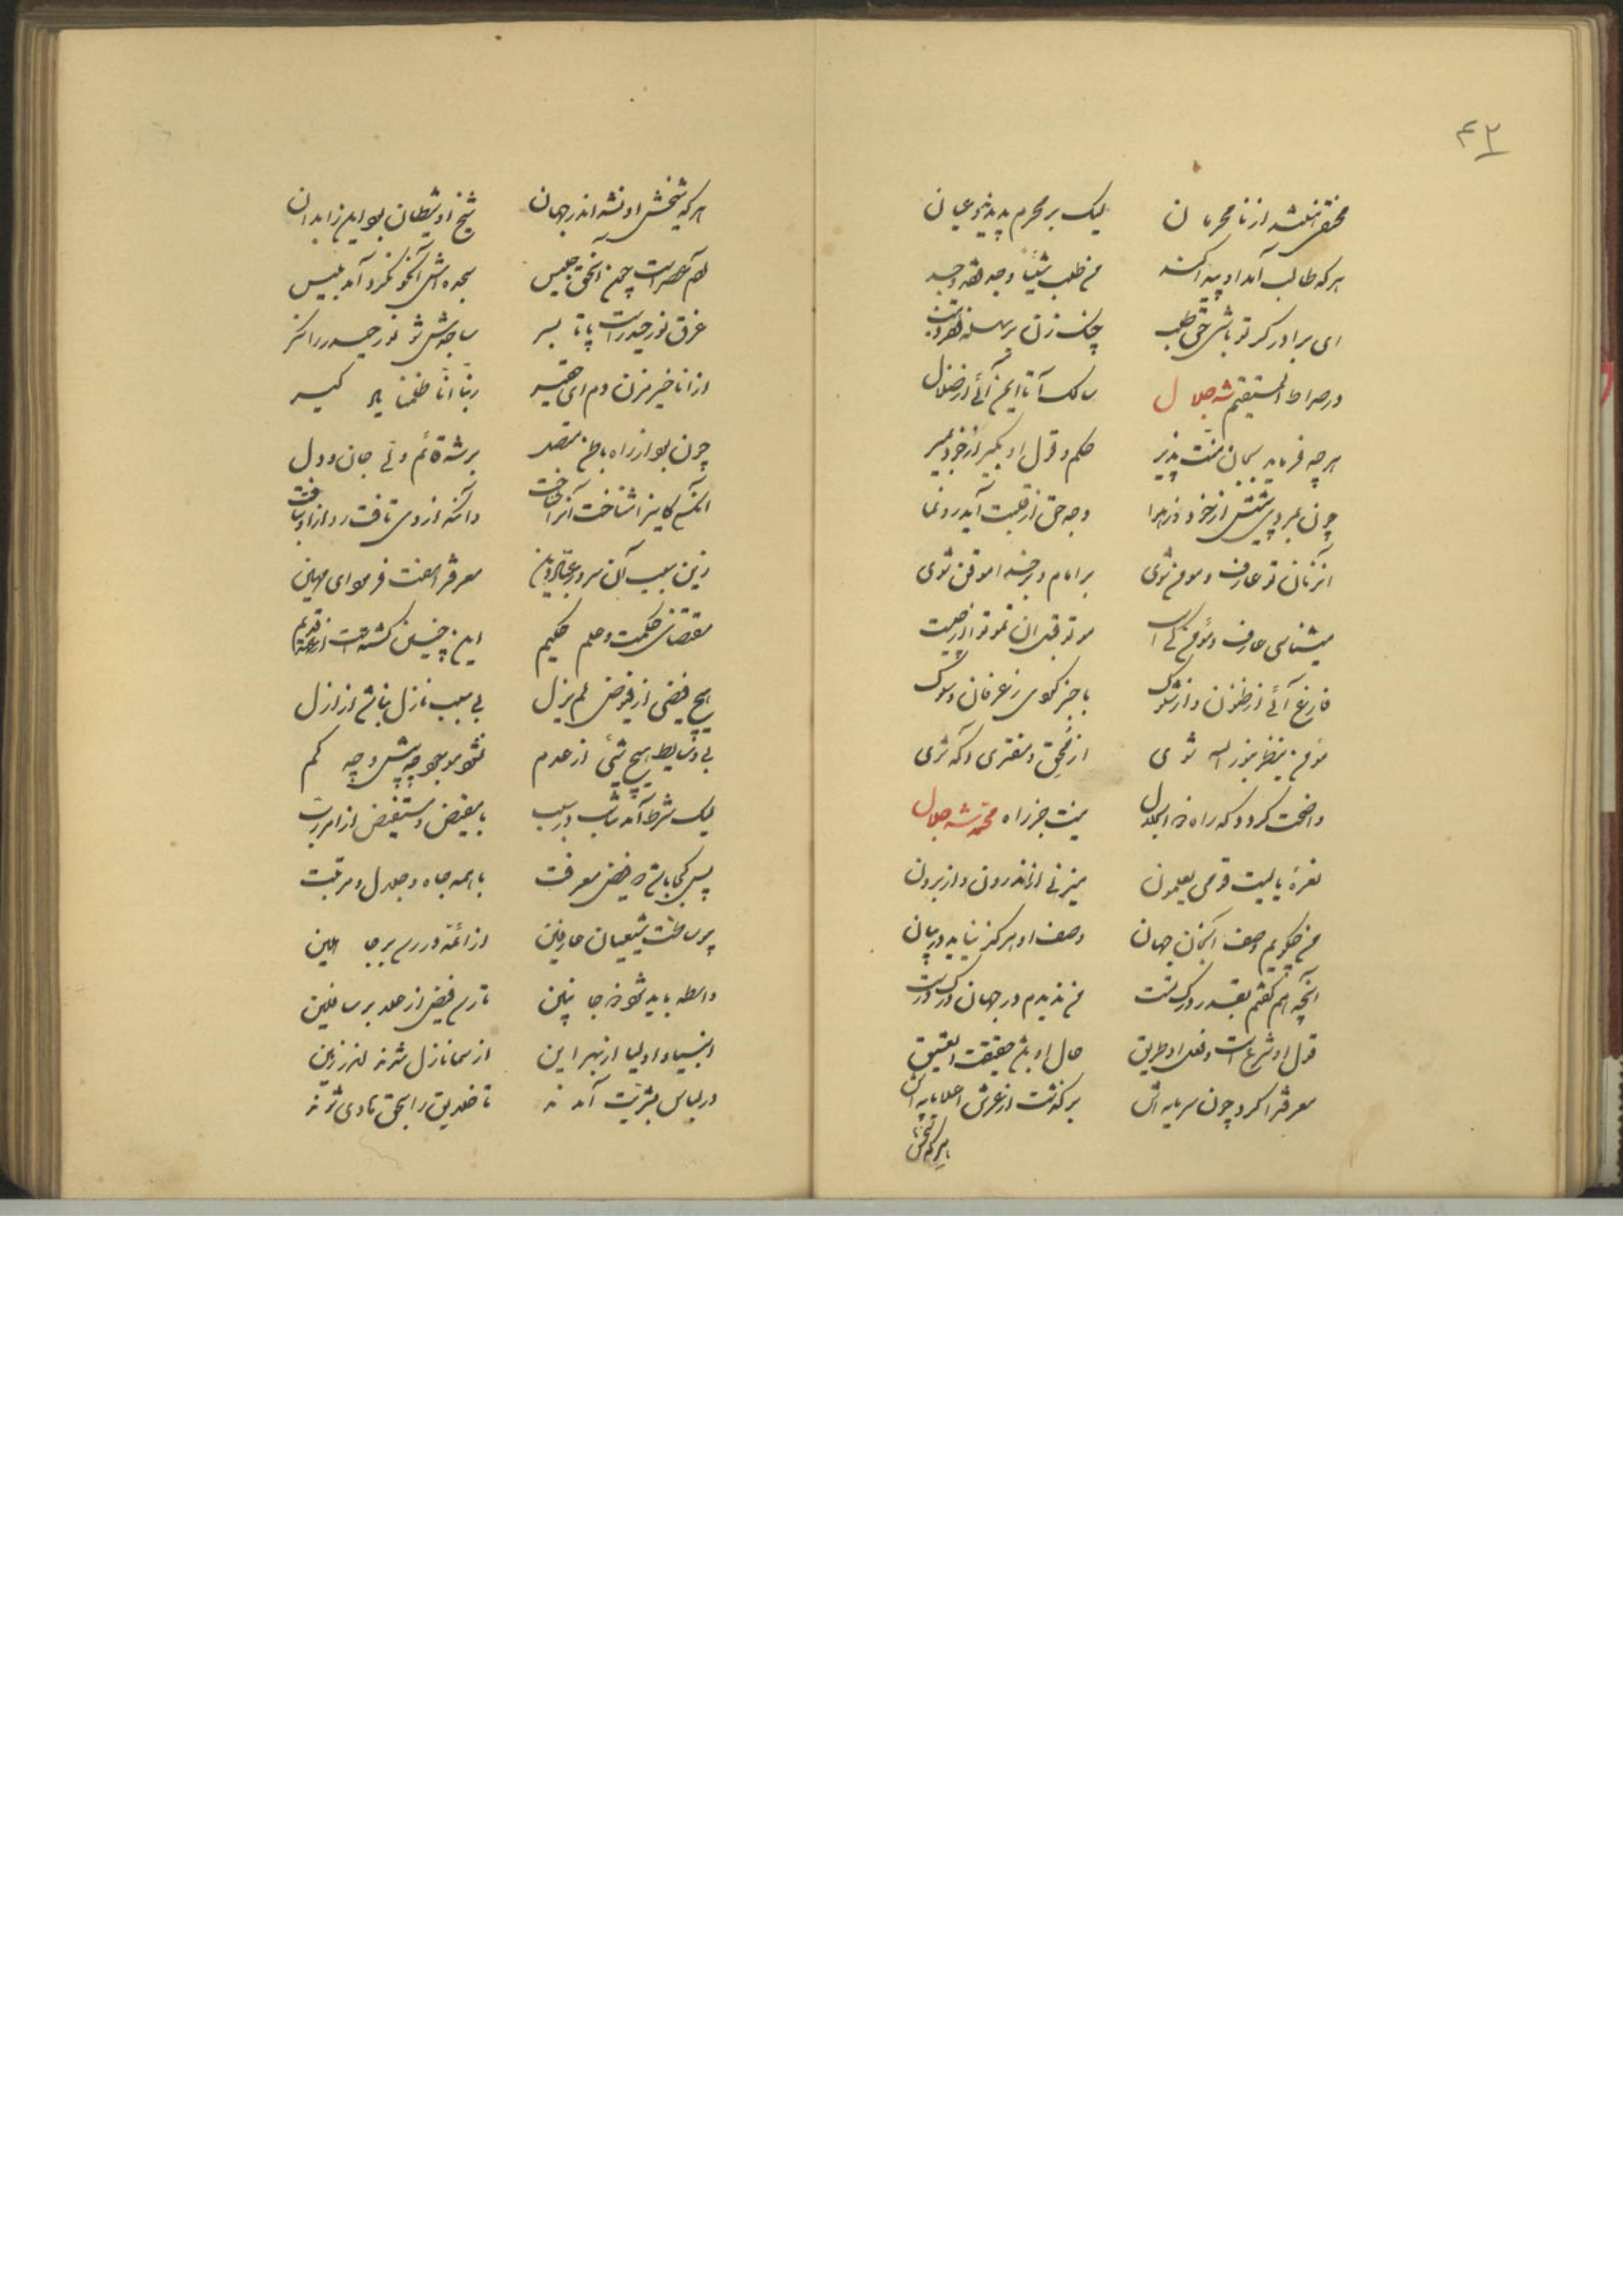 ۴۳
مختفی گشته از نامحرمان لیک بر محرم پدید و عیان
هر که طالب آمد او پیدا کند من طلب شیئا وجد لقد وجد
ای برادر گر تو باشی حق طلب چنگ زن بر
در صراط المستقیم شه جلال سالک آ تا ایمن آئی از ضلال
هر چه فرماید بجان منت پذیر حکم و قول او بگیر از خود بمیر
چون بمردی پیشش از خود وز هوا وجه حق از قلبت آید رونما
آنزمان تو عارف و مومن شوی بر امام و بر خدا موقن شوی
میشناسی عارف و مؤمن که است موتو قبل ان تموتوا از چیست
فارغ آئی از ظنون و از شکوک باخبر گردی ز عرفان و سلوک
مؤمن ینظر بنور الله شوی از محق و مفتری آگه شوی
واضحت گردد که راه ذو الجلال نیست جز راه محمد شه جلال
نعرهٔ یا لیت قومی یعلمون میزنی از اندرون و از برون
من چگویم وصف آنجان جهان وصف او هرگز نیاید در بیان
آنچه هم گفتم بقدر درک تست من ندیدم در جهان درک درست
قول او شرع است و فعل او طریق حال او باشد حقیقت ای عتیق
معرفت را کرد چون سرمایه‌اش برگذشت از عرش اعلا پایه‌اش
هر که شیخش
هر که شیخش او نشد اندر جهان شیخ او شیطان بود این را بدان
آدم عصر است چون با حق جلیس سجده‌اش آنکو نکرد آمد بلیس
غرق نور حیدر است پا تا بسر ساجدش شو نور حیدر را نگر
از انا خیر مزن دم ای فقیر ربنا انا ظلمنا یاد گیر
چون بود از راه باطن متصل بر شه قائم ولی جان و دل
آنکه کاینرا شناخت آنرا شناخت وآنکه از وی تافت رو از او بتافت
زین سبب آن سرور عباد دین معرفت را گفت فرمود ای مهین
مقتضای حکمت و علم حکیم این چنین گشته است از عهد قدیم
هیچ فیضی از فیوض لم یزل بی سبب نازل نباشد از ازل
بی وسایط هیچ شئی از عدم نشود موجود چه بیش و چه کم
لیک شرط آمد تناسب در سبب با مفیض و مستفیض از امر رب
پس کجا باشد که فیض معرفت با همه جاه و جلال و مرتبت
بی وساطت شیعیان عارفین از ائمه در رسد بر جاهلین
واسطه باید شود در جانبین تا رسد فیض از علا بر سافلین
انبیا و اولیا از بهر این از سما نازل شدند اندر زمین
در لباس بشریت آمدند تا خلایق را بحق هادی شدند